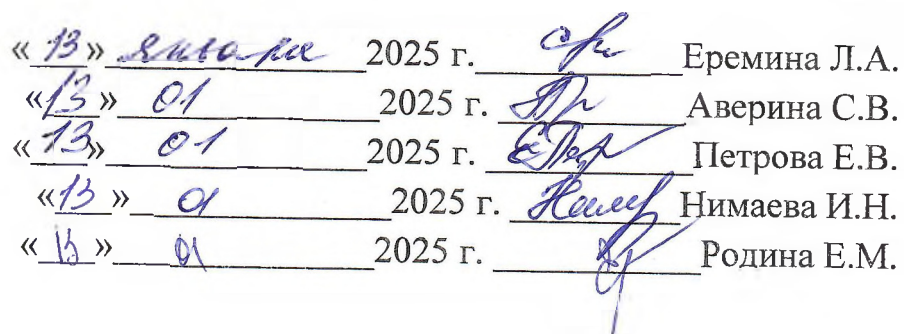 «13» января 2025 г. Еремина Л.А.
«13» 01 2025 г. Аверина С.В.
«13» 01 2025 г. ЕПетр Петрова Е.В.
«13» 01 2025 г. Нимаева И.Н.
«13» 01 2025 г. Родина Е.М.